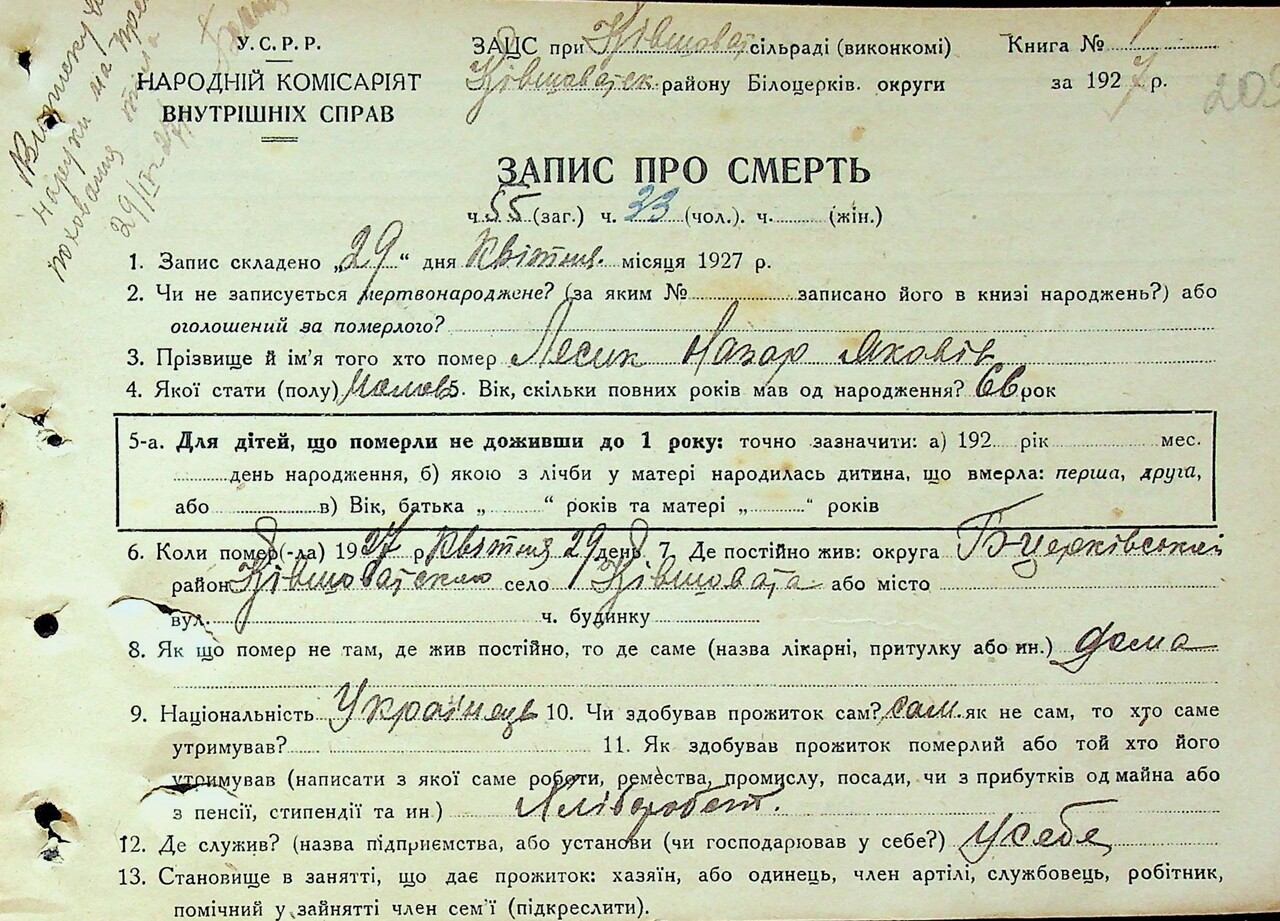 Виписку
на
поховання
29/IV-27
У.С.Р.Р.
НАРОДНІЙ КОМІСАРІЯТ
ВНУТРІШНІХ СПРАВ
ЗАЦС при Ківшоват сільраді (виконкомі)
Ківшоватск. району Білоцерків. округи
Книга № 1
за 1927 р.
203
ЗАПИС ПРО СМЕРТЬ
ч. 55 (заг.) ч. 33 (чол.). ч. (жін.)
1. Запис складено „29“ дня Квітня. місяця 1927 р.
2. Чи не записується мертвонароджене? (за яким № записано його в книзі народжень?) або
оголошений за померлого?
3. Прізвище й ім'я того хто помер Лесик Назар Яковів
4. Якої стати (полу) 5. Вік, скільки повних років мав од народження? рок
5-а. Для дітей, що померли не доживши до 1 року: точно зазначити: а) 192 рік мес.
день народження, б) якою з лічби у матері народилась дитина, що вмерла: перша, друга,
або в) Вік, батька „ “ років та матері „ “ років
6. Коли помер(-ла) 1927 р Квітня 29 день 7. Де постійно жив: округа Б Церківський
район Ківшоватського село Ківшовата або місто
вул. ч. будинку
8. Як що помер не там, де жив постійно, то де саме (назва лікарні, притулку або ин.) дома
9. Національність Українець 10. Чи здобував прожиток сам? сам. як не сам, то хто саме
утримував? 11. Як здобував прожиток померлий або той хто його
утримував (написати з якої саме роботи, ремества, промислу, посади, чи з прибутків од майна або
з пенсії, стипендії та ин) Хліборобст.
12. Де служив? (назва підприємства, або установи (чи господарював у себе?) У себе
13. Становище в занятті, що дає прожиток: хазяїн, або одинець, член артілі, службовець, робітник,
помічний у зайнятті член сем'ї (підкреслити).